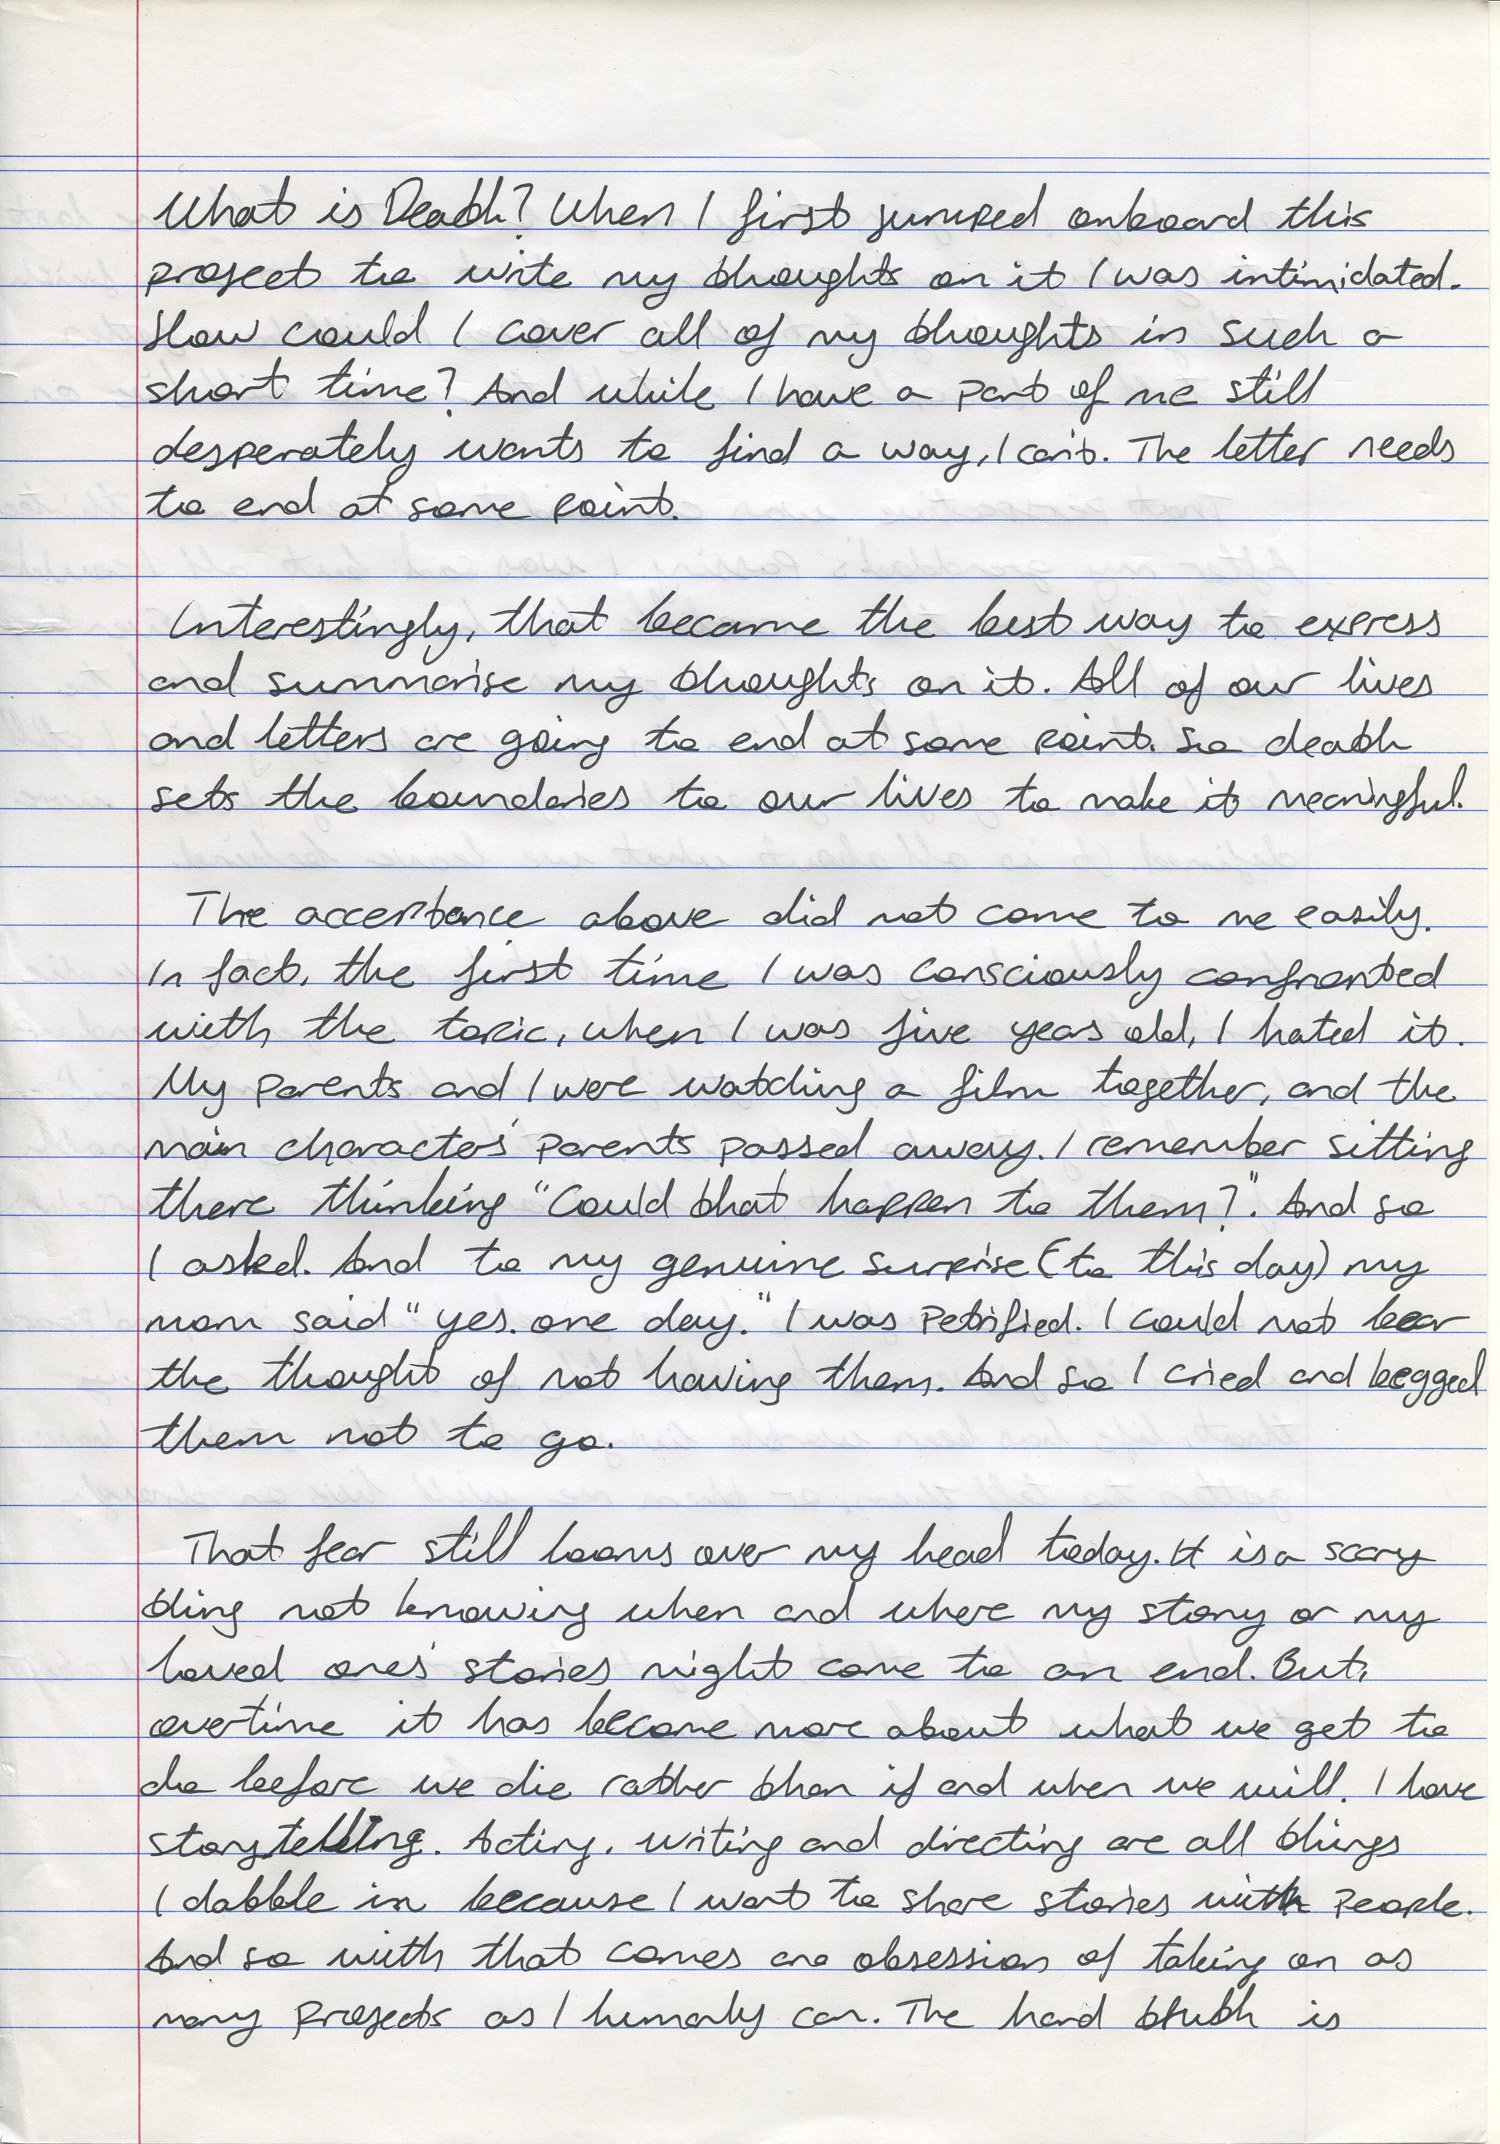 What is Death? When I first jumped onboard this
project to write my thoughts on it I was intimidated.
How could I cover all of my thoughts in such a
short time? And while I have a part of me still
desperately wants to find a way, I can't. The letter needs
to end at some point.
Interestingly, that became the best way to express
and summarise my thoughts on it. All of our lives
and letters are going to end at some point. So death
sets the boundaries to our lives to make it meaningful.
The acceptance above did not come to me easily.
In fact, the first time I was consciously confronted
with the topic, when I was five years old, I hated it.
My parents and I were watching a film together, and the
main characters' parents passed away. I remember sitting
there thinking "Could that happen to them?". And so
I asked. And to my genuine surprise (to this day) my
mom said "yes. one day." I was petrified. I could not bear
the thought of not having them. And so I cried and begged
them not to go.
That fear still looms over my head today. It is a scary
thing not knowing when and where my story or my
loved ones' stories might come to an end. But,
overtime it has become more about what we get to
do before we die rather than if and when we will. I love
storytelling. Acting, writing and directing are all things
I dabble in because I want to share stories with people.
And so with that comes an obsession of taking on as
many projects as I humanly can. The hard truth is